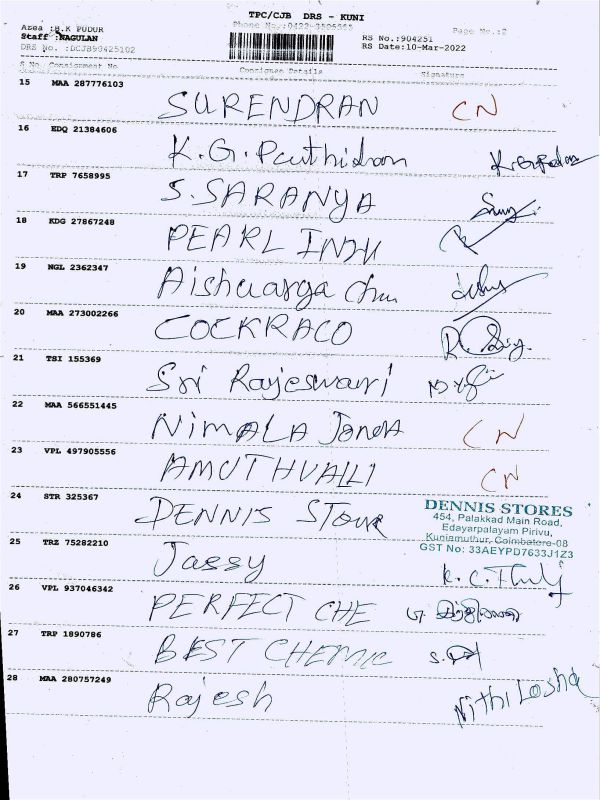 TPC/CJB DRS - KUNI
Area :B.K PUDUR
Phone No.:0422-
Page No.:2
Staff :NAGULAN
RS No.:904251
DRS No. :DCJB90425102
RS Date:10-Mar-2022
S No Consignment No Consignee Details Signature
15 MAA 287776103 SURENDRAN CN
16 EDQ 21384606 K.G.
17 TRP 7658995 S.SARANYA
18 KDG 27867248 PEARL INDU
19 NGL 2362347 Aishwarya
20 MAA 273002266 COCKRACO
21 TSI 155369 Sri Rajeswari
22 MAA 566551445 NIMALA CN
23 VPL 497905556 AMUTHVALLI CN
24 STR 325367 DENNIS STOUR
DENNIS STORES
454, Palakkad Main Road,
Edayarpalayam Pirivu,
Kuniamuthur, Coimbatore-08
GST No: 33AEYPD7633J1Z3
25 TRZ 75282210 Jassy
26 VPL 937046342 PERFECT CHE
27 TRP 1890786 BEST CHEMIC
28 MAA 280757249 Rajesh